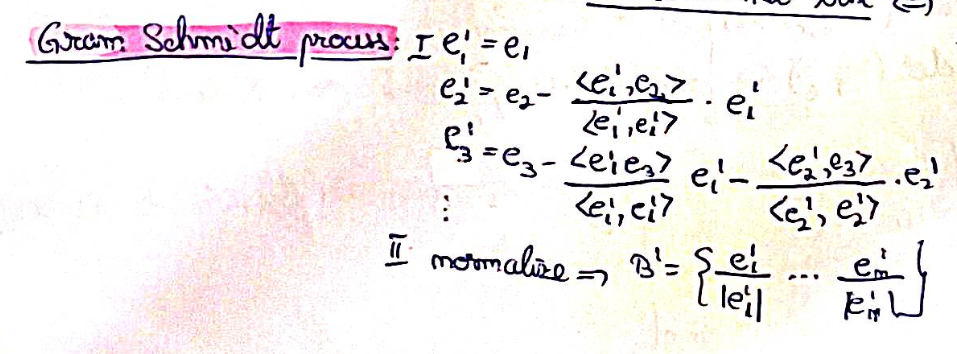 Gram Schmidt process: I e₁' = e₁
e₂' = e₂ - <e₁', e₂> / <e₁', e₁'> · e₁'
e₃' = e₃ - <e₁' e₃> / <e₁', e₁'> e₁' - <e₂', e₃> / <e₂', e₂'> · e₂'
⋮
II normalize => B' = { e₁' / |e₁'| ... eₙ' / |eₙ'| }